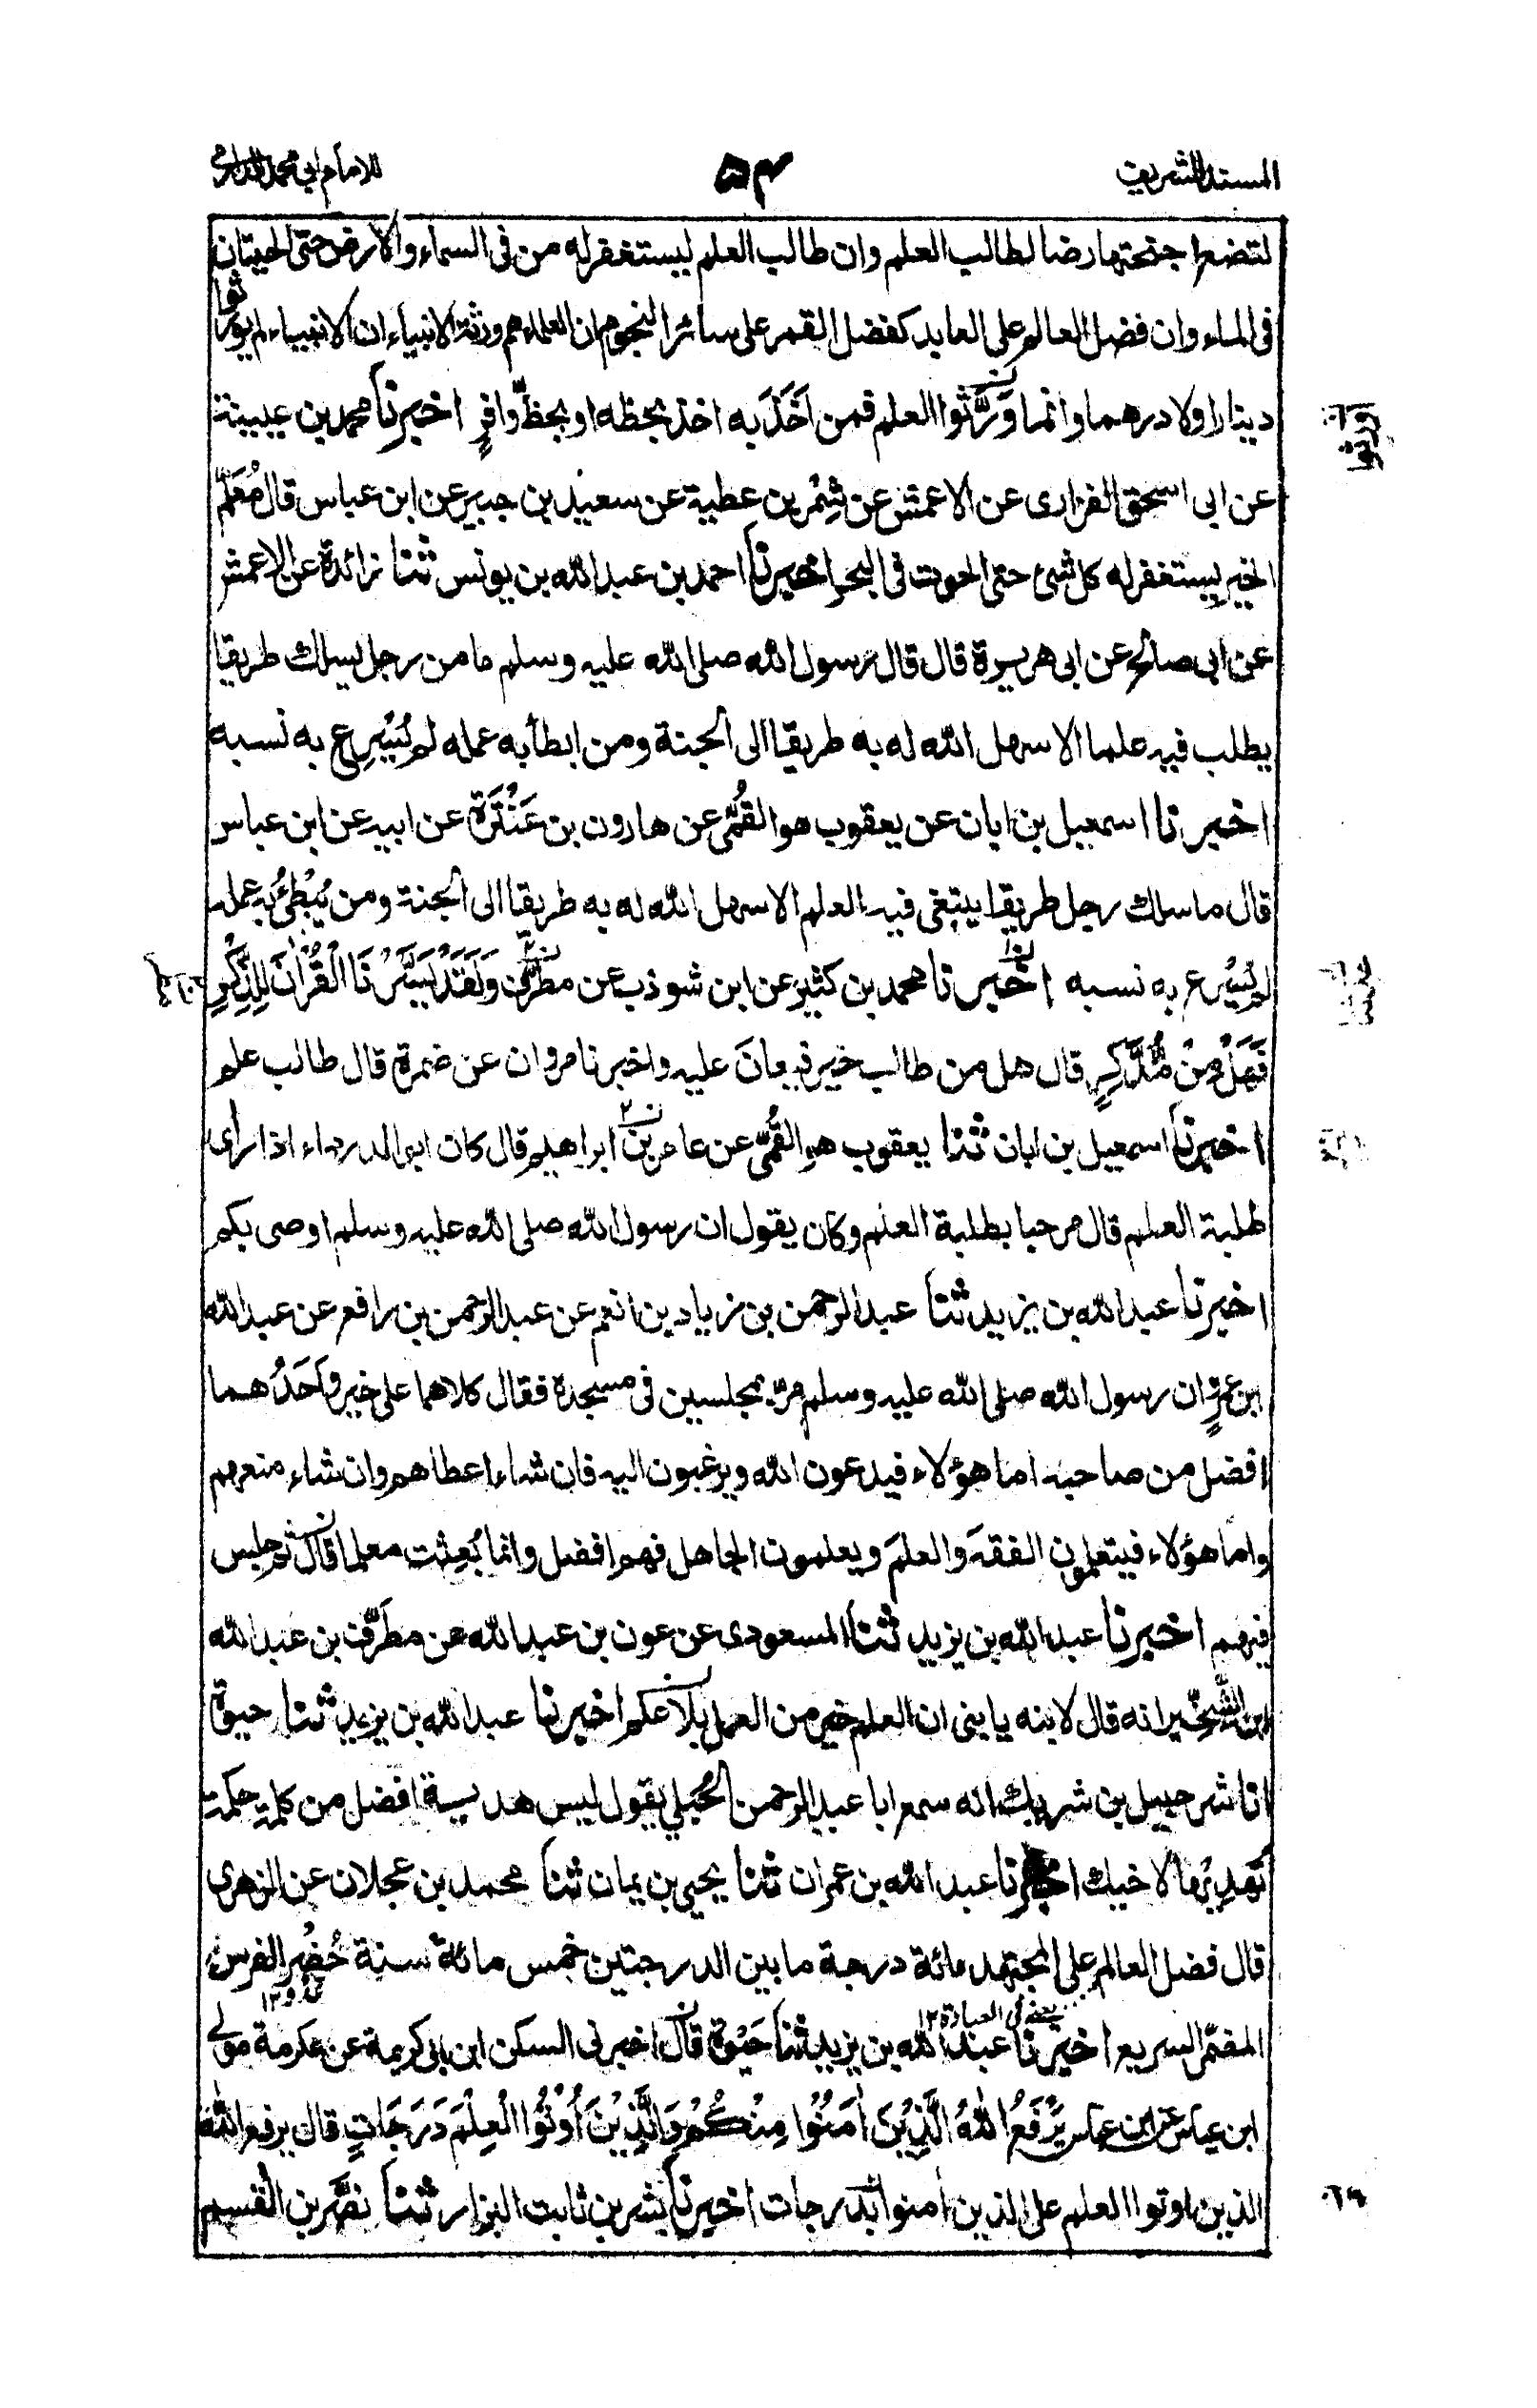 المسند الشريف
۵۴
للامام ابي محمد الدارمي
لتضع اجنحتها رضا لطالب العلم وان طالب العلم ليستغفر له من فى السماء والارض حتى الحيتان
فى الماء وان فضل العالم على العابد كفضل القمر على سائر النجوم ان العلماء هم ورثة الانبياء ان الانبياء لم يورثوا
دينارا ولا درهما وانما وَرَّثُوا العلم فمن اَخَذَ به اخذ بحظه او بحظّ وافرٍ اخبرنا محمد بن عيينة
عن ابى اسحق الفزارى عن الاعمش عن شِمْر بن عطية عن سعيد بن جبير عن ابن عباس قال مُعَلِّم
الخير يستغفر له كل شئ حتى الحوت فى البحر اخبرنا احمد بن عبد الله بن يونس ثنا زائدة عن الاعمش
عن ابى صالح عن ابى هريرة قال قال رسول الله صلى الله عليه وسلم ما من رجل يسلك طريقا
يطلب فيه علما الا سهل الله له به طريقا الى الجنة ومن ابطأ به عمله لم يُسْرِع به نسبه
اخبرنا اسمعيل بن ابان عن يعقوب هو القُمّى عن هارون بن عَنْتَرَة عن ابيه عن ابن عباس
قال ما سلك رجل طريقا يبتغى فيه العلم الا سهل الله له به طريقا الى الجنة ومن يُبْطِئُ به عمله
لم يُسْرِع به نسبه اخبرنا محمد بن كثير عن ابن شوذب عن مطرٍ وَلَقَدْ يَسَّرْنَا الْقُرْاٰنَ لِلذِّكْرِ
فَهَلْ مِنْ مُّدَّكِرٍ قال هل من طالب خير فيعانَ عليه واخبرنا مروان عن ضمرة قال طالب علم
اخبرنا اسمعيل بن ابان ثنا يعقوب هو القُمّى عن عامر بن ابراهيم قال كان ابو الدرداء اذا راى
طلبة العلم قال مرحبا بطلبة العلم وكان يقول ان رسول الله صلى الله عليه وسلم اوصى بكم
اخبرنا عبد الله بن يزيد ثنا عبد الرحمن بن زياد بن انعم عن عبد الرحمن بن رافع عن عبد الله
بن عمرٍو ان رسول الله صلى الله عليه وسلم مرّ بمجلسين فى مسجده فقال كلاهما على خير واَحَدُهما
افضل من صاحبه اما هؤلاء فيدعون الله ويرغبون اليه فان شاء اعطاهم وان شاء منعهم
واما هؤلاء فيتعلمون الفقهَ والعلمَ ويعلمون الجاهل فهم افضل وانما بُعِثْت معلما قال ثم جلس
فيهم اخبرنا عبد الله بن يزيد ثنا المسعودى عن عون بن عبد الله عن مطرّف بن عبد الله
بن الشّخّير انه قال لابنه يا بنى ان العلم خير من العمل بلا علم اخبرنا عبد الله بن يزيد ثنا حيوة
انا شرحبيل بن شريك انه سمع ابا عبد الرحمن الحُبلي يقول ليس هدية افضل من كلمة حكمة
تهديها لاخيك اخبرنا عبد الله بن عمران ثنا يحيى بن يمان ثنا محمد بن عجلان عن الزهرى
قال فضل العالم على المجتهد مائة درجة ما بين الدرجتين خمس مائة سنة حُضْر الفرس
يعنى فى العبادة ۱۲
المضمّر السريع اخبرنا عبد الله بن يزيد ثنا حَيْوة قال اخبرنى السكن ابن ابى كريمة عن عكرمة مولى
ابن عباس عن ابن عباس يَرْفَعُ اللهُ الَّذِيْنَ اٰمَنُوْا مِنْكُمْ وَالَّذِيْنَ اُوْتُوا الْعِلْمَ دَرَجَاتٍ قال يرفع الله
الذين اوتوا العلم على الذين امنوا بدرجات اخبرنا بشر بن ثابت البزار ثنا نصر بن القسم